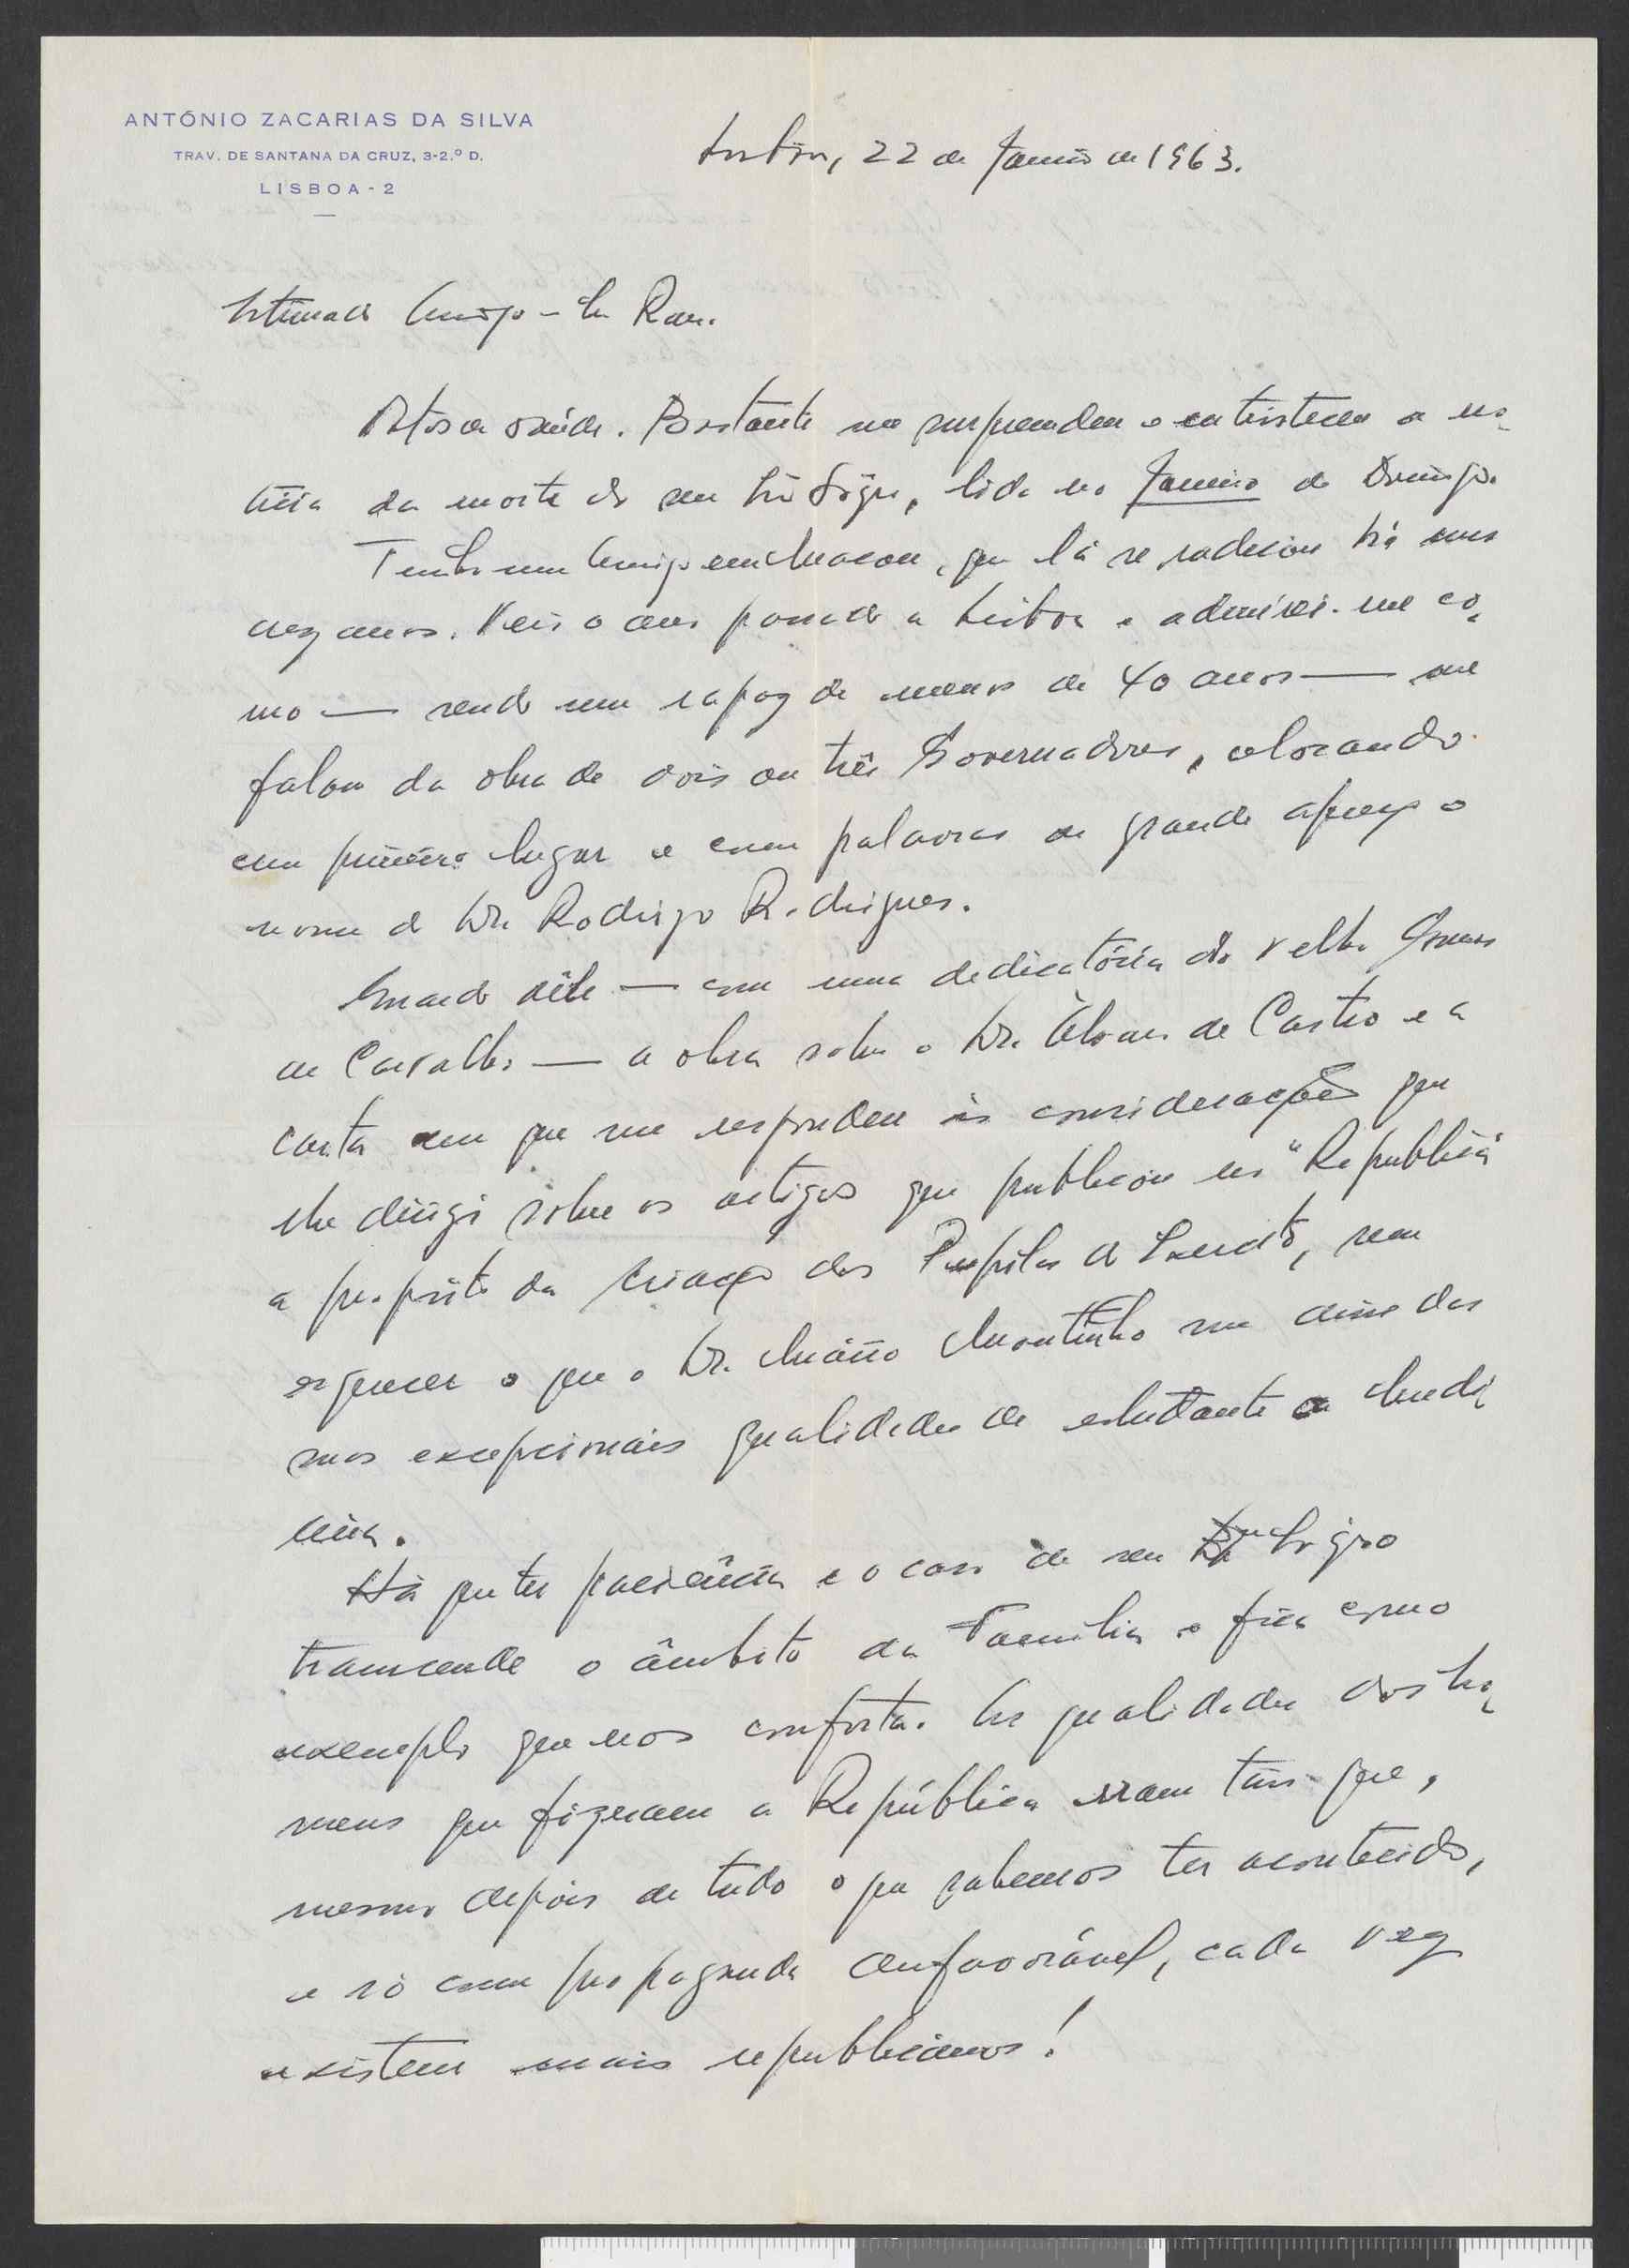 ANTÓNIO ZACARIAS DA SILVA
TRAV. DE SANTANA DA CRUZ, 3-2.º D.
LISBOA - 2
Lisboa, 22 de Janeiro de 1963.
Estimado Amigo - Sr.
saúde. Bastante me surpreendeu e entristeceu a no-
tícia da morte do seu Sogro, lida no Janeiro de Domingo.
Tenho um Amigo em Macau, que lá se radicou há uns
dez anos. Veio o ano passado a Lisboa e admirei-me co-
mo — sendo um rapaz de menos de 40 anos — me
falou da obra de dois ou três Governadores, colocando
em primeiro lugar e com palavras de grande apreço o
nome do Dr. Rodrigo Rodrigues.
Guardo dêle — com uma dedicatória do velho Gomes
de Carvalho — a obra sobre o Dr. Álvaro de Castro e a
carta em que me respondeu às considerações que
lhe dirigi sobre os artigos que publicou na "República"
a propósito da criação dos Pupilos do Exército, sem
esquecer o que o Dr. Mário Moutinho me disse das
suas excepcionais qualidades de estudante de Medi-
cina.
Há que ter paciência e o caso de seu Sogro
transcende o âmbito da Família e fica como
exemplo que nos conforta. As qualidades dos ho-
mens que fizeram a República eram tais que,
mesmo depois de tudo o que sabemos ter acontecido,
e só com propaganda desfavorável, cada vez
existem mais republicanos!